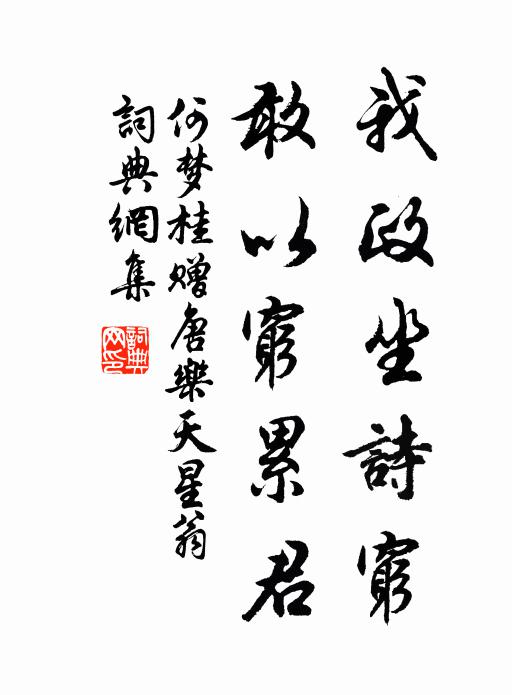 我政坐詩窮
敢以窮累君
何梦桂赠唐樂天星翁
詞典網集
詞典網印